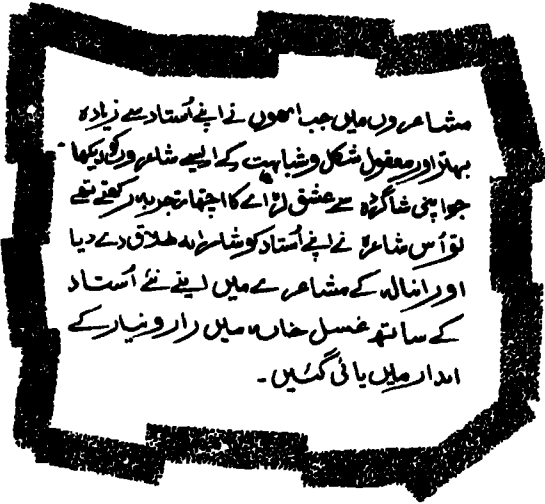 مشاعروں میں جب انھوں نے اپنے اُستاد سے زیادہ
بہتر اور معقول شکل و شباہت کے ایسے شاعروں کو دیکھا
جو اپنی شاگردہ سے عشق لڑانے کا اچھا تجربہ رکھتے تھے
تو اُس شاعرہ نے اپنے اُستاد کو شاعرانہ طلاق دے دیا
اور انبالہ کے مشاعرے میں اپنے نئے اُستاد
کے ساتھ غسل خانہ میں راز و نیاز کے
انداز میں پائی گئیں ۔